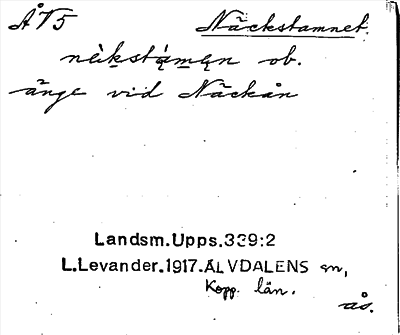 ÅV5 Näckstamnet.
ob.
änge vid Näckån
Landsm.Upps.339:2
L.Levander.1917.ÄLVDALENS sn,
Kopp. län.
ås.